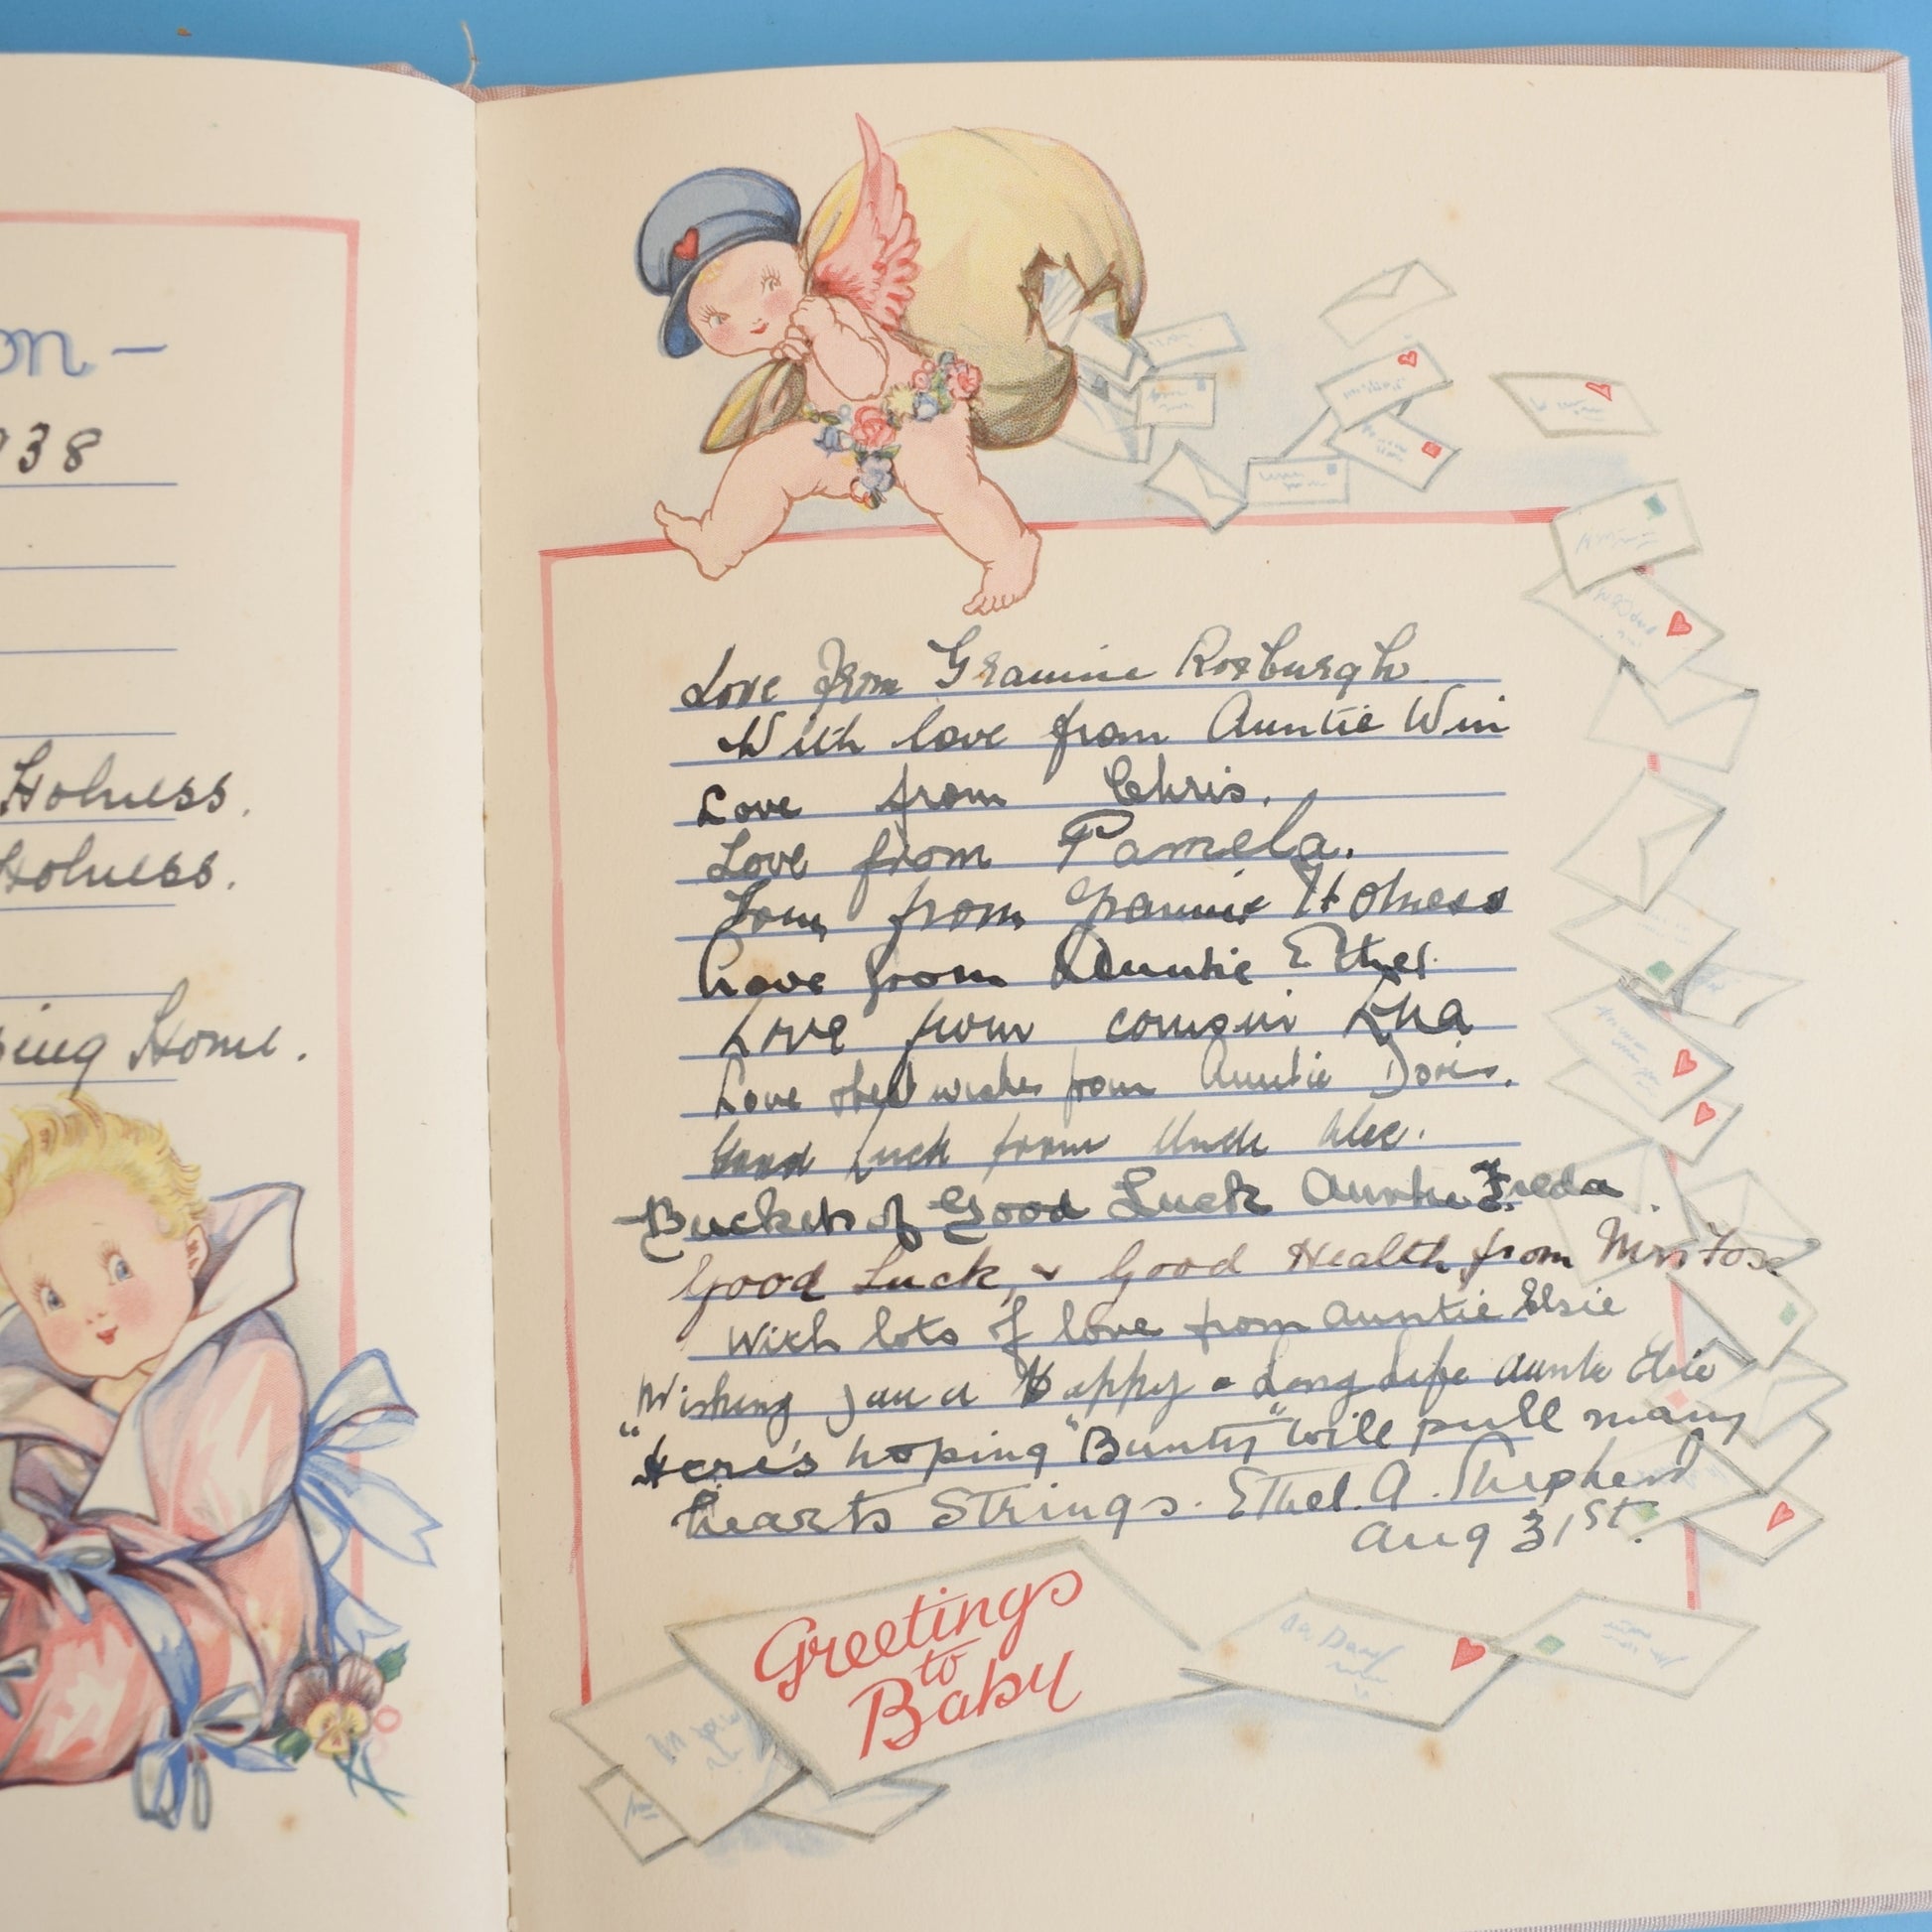 on —
938
Holness.
Holness.
Home.
Love from Grannie Roxburgh
With love from Auntie Win
Love from Chris.
Love from Pamela.
Love from Grannie Holness
Love from Auntie Ethel.
Love from cousin
Love & best wishes from Auntie Doris.
Good Luck from Uncle Alec.
Buckets of Good Luck Auntie Freda
Good Luck, & Good Health from Miss Fox
With lots of love from Auntie Elsie
Wishing you a Happy & Long Life Auntie
"Here's hoping "Bunty" will pull many
hearts Strings. Ethel. A. Shepherd
Aug 31st.
Greetings
to
Baby